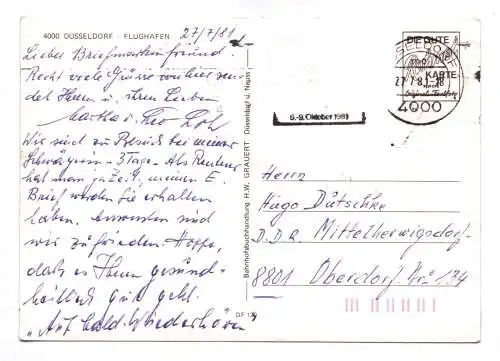 4000 DÜSSELDORF - FLUGHAFEN
27/7/81
Lieber Briefmarkenfreund.
Recht viele Grüsse von hier sen-
det Ihnen u. Ihren Lieben
Martha u. Leo
Wir sind zu Besuch bei meiner
Schwägerin - 3 Tage. Als Rentner
hat man ja Zeit, meinen E.
Brief werden Sie erhalten
haben. Ansonsten sind
wir zufrieden. Hoffe,
daß es Ihnen gesund-
heitlich gut geht.
"Auf bald. Wiederhören"
Bahnhofsbuchhandlung H.W. GRAUERT Düsseldorf u. Neuss
DF 12
6.-9. Oktober 1981
DIE GUTE
KARTE
27.7.81-18
4000
Herrn
Hugo Dutschke
D.D.R. Mittelherwigsdorf
8801 Oberdorf. Nr. 134